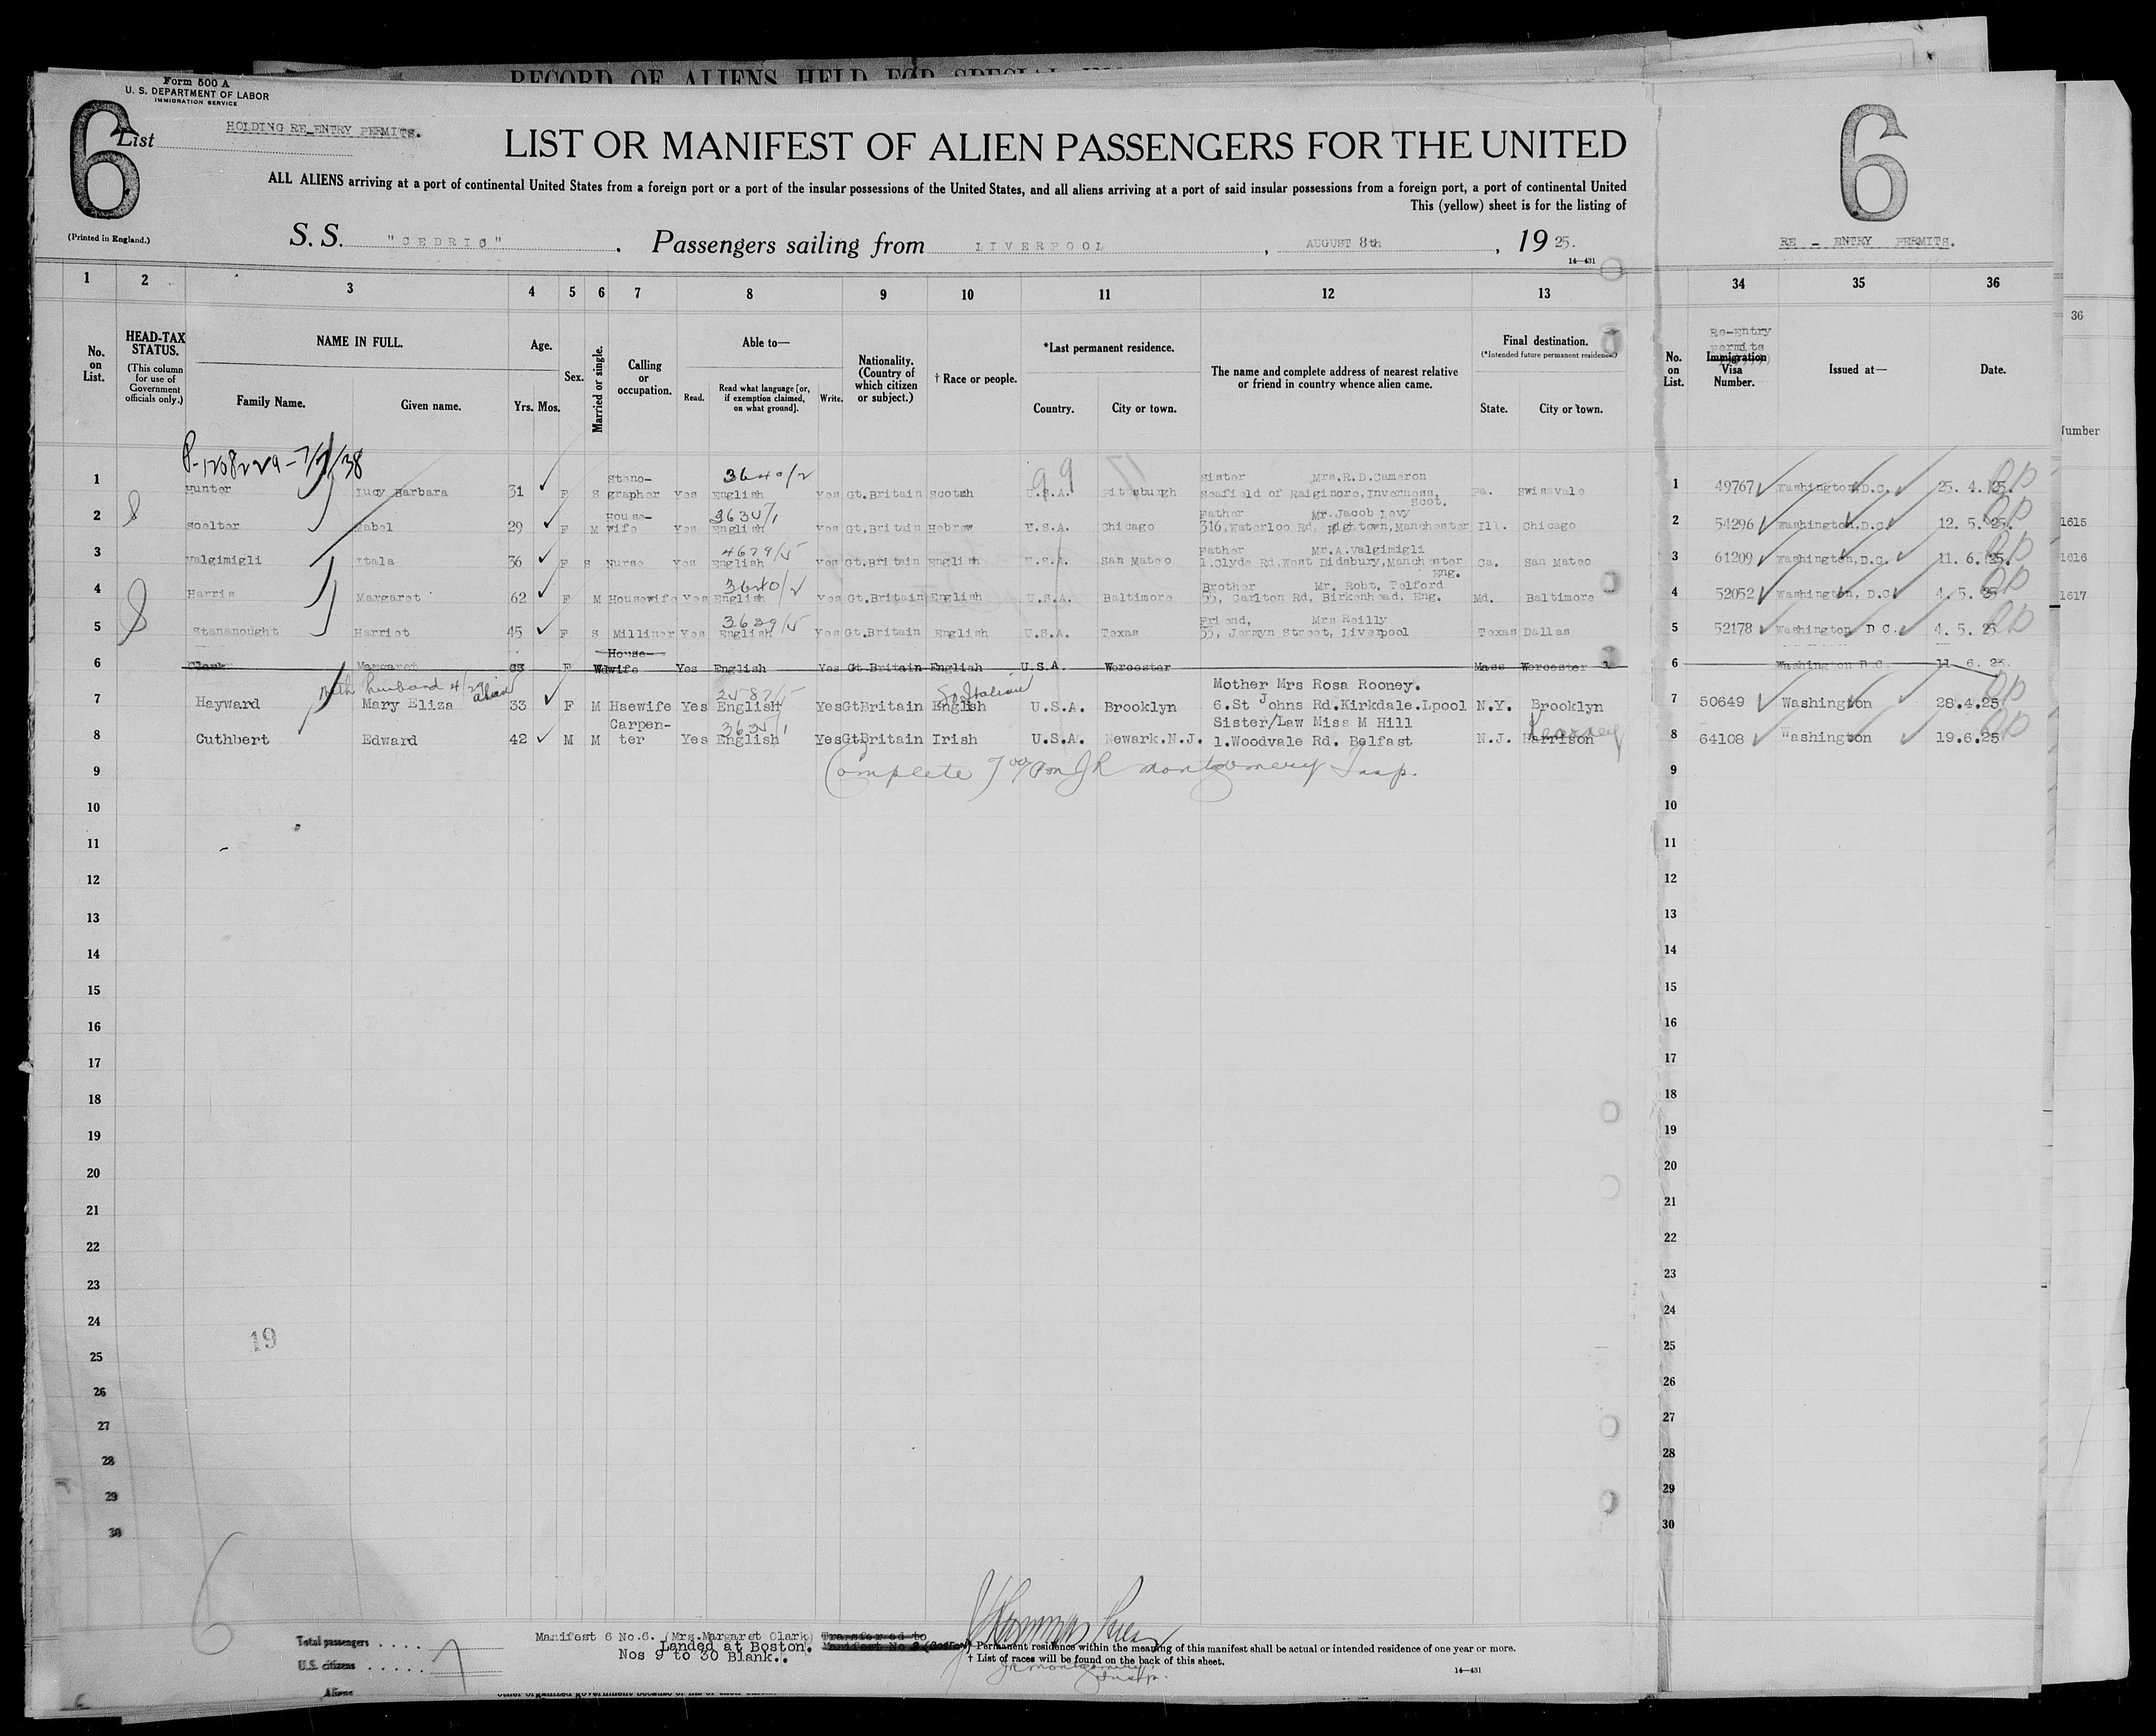 RECORD OF ALIENS HELD FOR SPECIAL
Form 500 A
U. S. DEPARTMENT OF LABOR
IMMIGRATION SERVICE
6
List HOLDING RE_ENTRY PERMITS.
LIST OR MANIFEST OF ALIEN PASSENGERS FOR THE UNITED
ALL ALIENS arriving at a port of continental United States from a foreign port or a port of the insular possessions of the United States, and all aliens arriving at a port of said insular possessions from a foreign port, a port of continental United
This (yellow) sheet is for the listing of
(Printed in England.)
S. S. "CEDRIC". Passengers sailing from LIVERPOOL, AUGUST 8th, 19 25.
14—431
6
RE - ENTRY PERMITS.
1 2 3 4 5 6 7 8 9 10 11 12 13 34 35 36
36
No. on List.
HEAD-TAX STATUS.
(This column for use of Government officials only.)
NAME IN FULL.
Family Name. Given name.
Age.
Yrs. Mos.
Sex.
Married or single.
Calling or occupation.
Able to—
Read. Read what language [or, if exemption claimed, on what ground]. Write.
Nationality. (Country of which citizen or subject.)
† Race or people.
*Last permanent residence.
Country. City or town.
The name and complete address of nearest relative or friend in country whence alien came.
Final destination.
(*Intended future permanent residence.)
State. City or town.
No. on List.
Re-Entry permits
Immigration Visa Number.
Issued at—
Date.
Number
1 Hunter Lucy Barbara 31 F S Steno-grapher Yes English 3640/2 Yes Gt.Britain Scotch U.S.A. Pittsburgh Sister Mrs.R.D.Cameron Seafield of Raiginore,Inverness, Scot. Pa. Swissvale 1 49767 Washington,D.C. 25. 4. 25.
2 Soelter Mabel 29 F M House-wife Yes English Yes Gt.Britain Hebrew U.S.A. Chicago Father Mr.Jacob Levy 316,Waterloo Rd, Hightown,Manchester Ill. Chicago 2 54296 Washington,D.C. 12. 5. 25. 1615
3 Valgimigli Itala 36 F S Nurse Yes English 4679/5 Yes Gt.Britain English U.S.A. San Mateo Father Mr.A.Valgimigli 1.Clyde Rd.West Didsbury,Manchester Eng. Ca. San Mateo 3 61209 Washington,D.C. 11. 6. 25. 1616
4 Harris Margaret 62 F M Housewife Yes English 3640/2 Yes Gt.Britain English U.S.A. Baltimore Brother Mr. Robt. Telford 55, Carlton Rd, Birkenhead. Eng. Md. Baltimore 4 52052 Washington, D.C 4. 5. 25 1617
5 Stananought Harriet 45 F S Milliner Yes English 3639/5 Yes Gt.Britain English U.S.A. Texas Friend, Mrs Reilly 55, Jermyn Street, Liverpool Texas Dallas 5 52178 Washington D C. 4. 5. 25
6 Clark Margaret F Wd House-wife Yes English Yes Gt.Britain English U.S.A. Worcester Mass Worcester 6 Washington D.C. 11. 6. 25.
with husband 4/29 alias
7 Hayward Mary Eliza 33 F M Hsewife Yes English Yes GtBritain English So Italian U.S.A. Brooklyn Mother Mrs Rosa Rooney. 6.St Johns Rd.Kirkdale.Lpool N.Y. Brooklyn 7 50649 Washington 28.4.25
8 Cuthbert Edward 42 M M Carpen-ter Yes English Yes GtBritain Irish U.S.A. Newark.N.J. Sister/Law Miss M Hill 1.Woodvale Rd. Belfast N.J. Harrison Kearney 8 64108 Washington 19.6.25
Complete JR Montgomery Insp.
9 9
10 10
11 11
12 12
13 13
14 14
15 15
16 16
17 17
18 18
19 19
20 20
21 21
22 22
23 23
24 24
19
25 25
26 26
27 27
28 28
29 29
30 30
6
Total passengers . . . .
U.S. citizens . . . . . 7
Aliens
Manifest 6 No.6. (Mrs.Margaret Clark) Transfered to
Landed at Boston.
Nos 9 to 30 Blank..
* Permanent residence within the meaning of this manifest shall be actual or intended residence of one year or more.
† List of races will be found on the back of this sheet.
JR Montgomery
Insp.
14—431